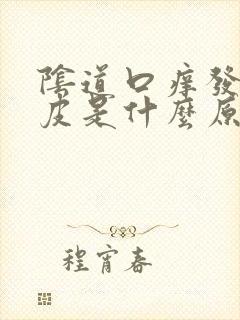 陰道口痒發
皮是什麼原
程宵春